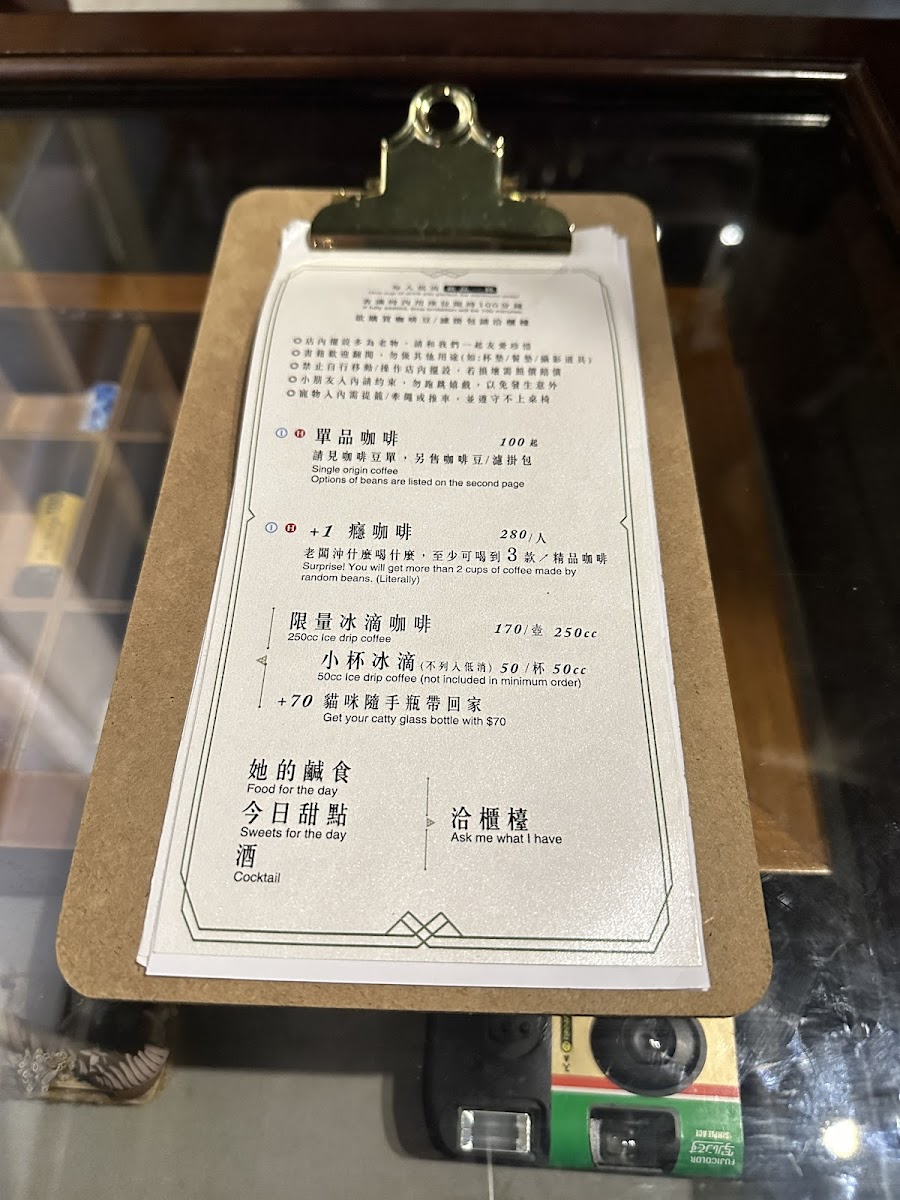 每人低消 飲品一杯
One cup of drink per person for minimum order
客滿時內用座位限時100分鐘
If fully seated, time limitation will be 100 minutes
欲購買咖啡豆/濾掛包請洽櫃檯
◎店內擺設多為老物，請和我們一起友愛珍惜
◎書籍歡迎翻閱，勿做其他用途(如:杯墊/餐墊/攝影道具)
◎禁止自行移動/操作店內擺設，若損壞需照價賠償
◎小朋友入內請約束，勿跑跳嬉戲，以免發生意外
◎寵物入內需提籠/牽繩或推車，並遵守不上桌椅
I H 單品咖啡 100起
請見咖啡豆單，另售咖啡豆/濾掛包
Single origin coffee
Options of beans are listed on the second page
I H +1 癮咖啡 280/人
老闆沖什麼喝什麼，至少可喝到 3 款／精品咖啡
Surprise! You will get more than 2 cups of coffee made by
random beans. (Literally)
限量冰滴咖啡 170/壺 250cc
250cc Ice drip coffee
小杯冰滴(不列入低消) 50/杯 50cc
50cc Ice drip coffee (not included in minimum order)
+70 貓咪隨手瓶帶回家
Get your catty glass bottle with $70
她的鹹食
Food for the day
今日甜點
Sweets for the day
洽櫃檯
Ask me what I have
酒
Cocktail
写ルンです
SIMPLE ACE
FUJICOLOR